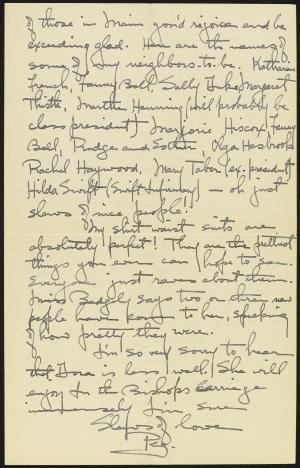 of those in Main you'd rejoice and be
exceeding glad. Here are the names of
some of my neighbors-to-be. Katharine
French, Fanny Bell, Sally Tuke, Margaret
Thistle, Martha Henning (will probably be
class president) Marjorie Hiscox, Fanny
Bell, Prudge and Esther, Olga Hasbrook
Rachel Haywood, Mary Taber (ex-president)
Hilda Swift (Swift Infirmary) – oh just
slews of nice people!
My shirt waist suits are
absolutely perfect! They are the prettiest
things you ever can hope to see.
Everyone just raves about them.
Miss Badgly says two or three new
people have come to her, speaking
of how pretty they were.
I'm so very sorry to hear
that Dora is less well. She will
enjoy the Bishop's carriage
immensely I'm sure
Slews of love